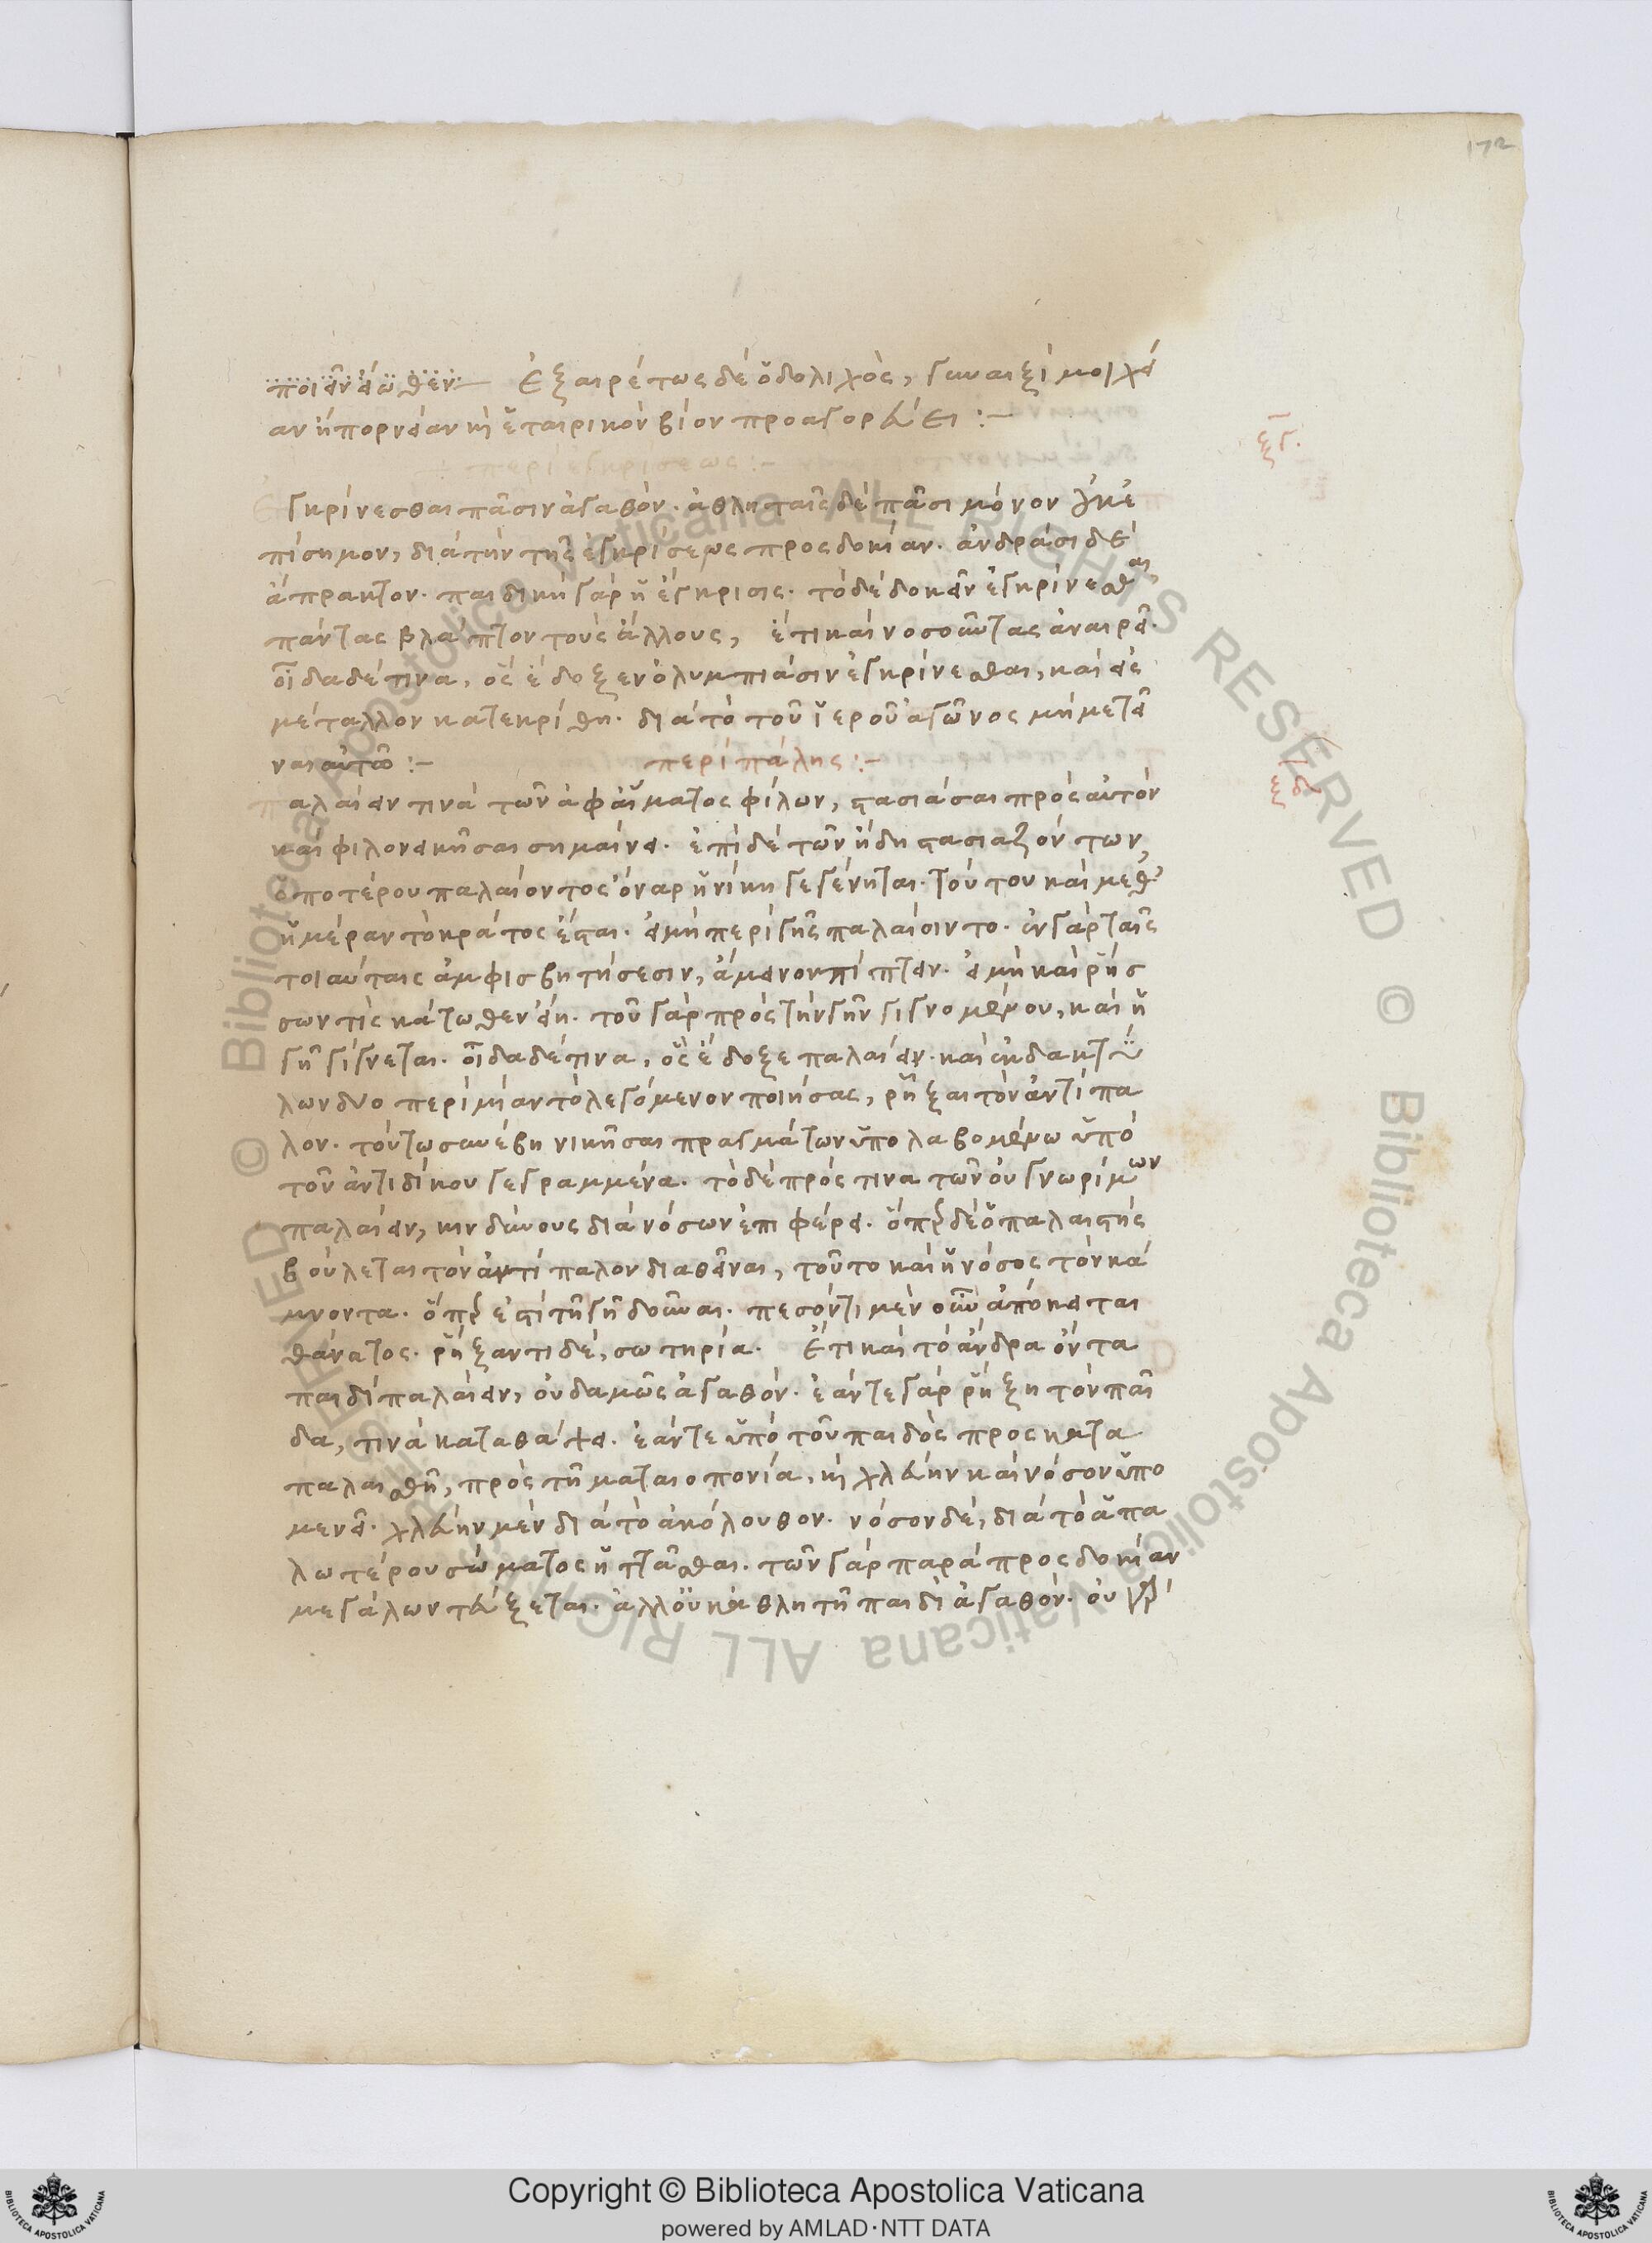 172
ποιεῖν εἴωθεν Ἐξαιρέτως δὲ ὁ δόλιχος, γυναιξὶ μοιχεί
αν ἢ πορνείαν ἢ ἑταιρικὸν βίον προαγορεύει :–
ξγ.
+ περὶ ἐγκρίσεως :–
Ἐγκρίνεσθαι πᾶσιν ἀγαθόν. ἀθληταῖς δὲ πᾶσι μόνον
πίσημον, διὰ τὴν τῆς ἐγκρίσεως προσδοκίαν. ἀνδράσι δὲ
ἄπρακτον. παιδικὴ γὰρ ἡ ἔγκρισις. τὸ δὲ δοκεῖν ἐγκρίνεσθαι
πάντας βλάπτον τοὺς ἄλλους, ἔτι καὶ νοσοῦντας ἀναιρεῖ.
οἶδα δέ τινα, ὃς ἔδοξεν ὀλυμπιάσιν ἐγκρίνεσθαι, καὶ εἰς
μέταλλον κατεκρίθη. διὰ τὸ τοῦ ἱεροῦ ἀγῶνος μὴ μετεῖ
ναι αὐτῶ :– περὶ πάλης :–
ξδ
παλαίειν τινὰ τῶν ἀφ' αἵματος φίλων, στασιάσαι πρὸς αὐτὸν
καὶ φιλονεικῆσαι σημαίνει. ἐπὶ δὲ τῶν ἤδη στασιαζόντων,
ὁποτέρου παλαίοντος ὄναρ ἡ νίκη γεγένηται. τούτου καὶ μεθ'
ἡμέραν τὸ κράτος ἔσται. εἰ μὴ περὶ γῆς παλαίοιντο. ἐν γὰρ ταῖς
τοιαύταις ἀμφισβητήσεσιν, ἄμεινον πίπτειν. εἰ μὴ καὶ ῥήσ
σων τις κάτωθεν εἴη. τοῦ γὰρ πρὸς τὴν γῆν γιγνομένου, καὶ ἡ
γῆ γίγνεται. οἶδα δέ τινα, ὃς ἔδοξε παλαίειν. καὶ ἐκ δακτύ
λων δυο περὶ μίαν τὸ λεγόμενον ποιήσας, ῥῆξαι τὸν ἀντίπα
λον. τούτω συνέβη νικῆσαι πραγμάτων ὑπολαβομένω ὑπὸ
τοῦ ἀντιδίκου γεγραμμένα. τὸ δὲ πρός τινα τῶν οὐ γνωρίμων
παλαίειν, κινδύνους διὰ νόσων ἐπιφέρει. ὅπερ δὲ ὁ παλαιστὴς
βούλεται τὸν ἀντίπαλον διαθεῖναι, τοῦτο καὶ ἡ νόσος τὸν κά
μνοντα. ὅπερ ἐστὶ τῆ γῆ δοῦναι. πεσόντι μὲν οὖν ἀπόκειται
θάνατος. ῥήξαντι δὲ, σωτηρία. Ἔτι καὶ τὸ ἄνδρα ὄντα
παιδὶ παλαίειν, οὐδαμῶς ἀγαθόν. ἐάν τε γὰρ ῥήξη τὸν παῖ
δα, τινὰ καταθάψει. ἐάν τε ὑπὸ τοῦ παιδὸς προσκατα
παλαισθῆ, πρὸς τῆ ματαιοπονία, ἢ χλεύην καὶ νόσον ὑπο
μενεῖ. χλεύην μὲν διὰ τὸ ἀκόλουθον. νόσον δὲ, διὰ τὸ ἁπα
λωτέρου σώματος ἡττᾶσθαι. τῶν γὰρ παρὰ προσδοκίαν
μεγάλων τεύξεται. ἀλλ' οὐκ ἀθλητῆ παιδὶ ἀγαθόν. οὐ γὰρ
Copyright © Biblioteca Apostolica Vaticana
powered by AMLAD·NTT DATA
BIBLIOTECA APOSTOLICA VATICANA
BIBLIOTECA APOSTOLICA VATICANA
© Biblioteca Apostolica Vaticana ALL RIGHTS RESERVED © Biblioteca Apostolica Vaticana ALL RIGHTS RESERVED